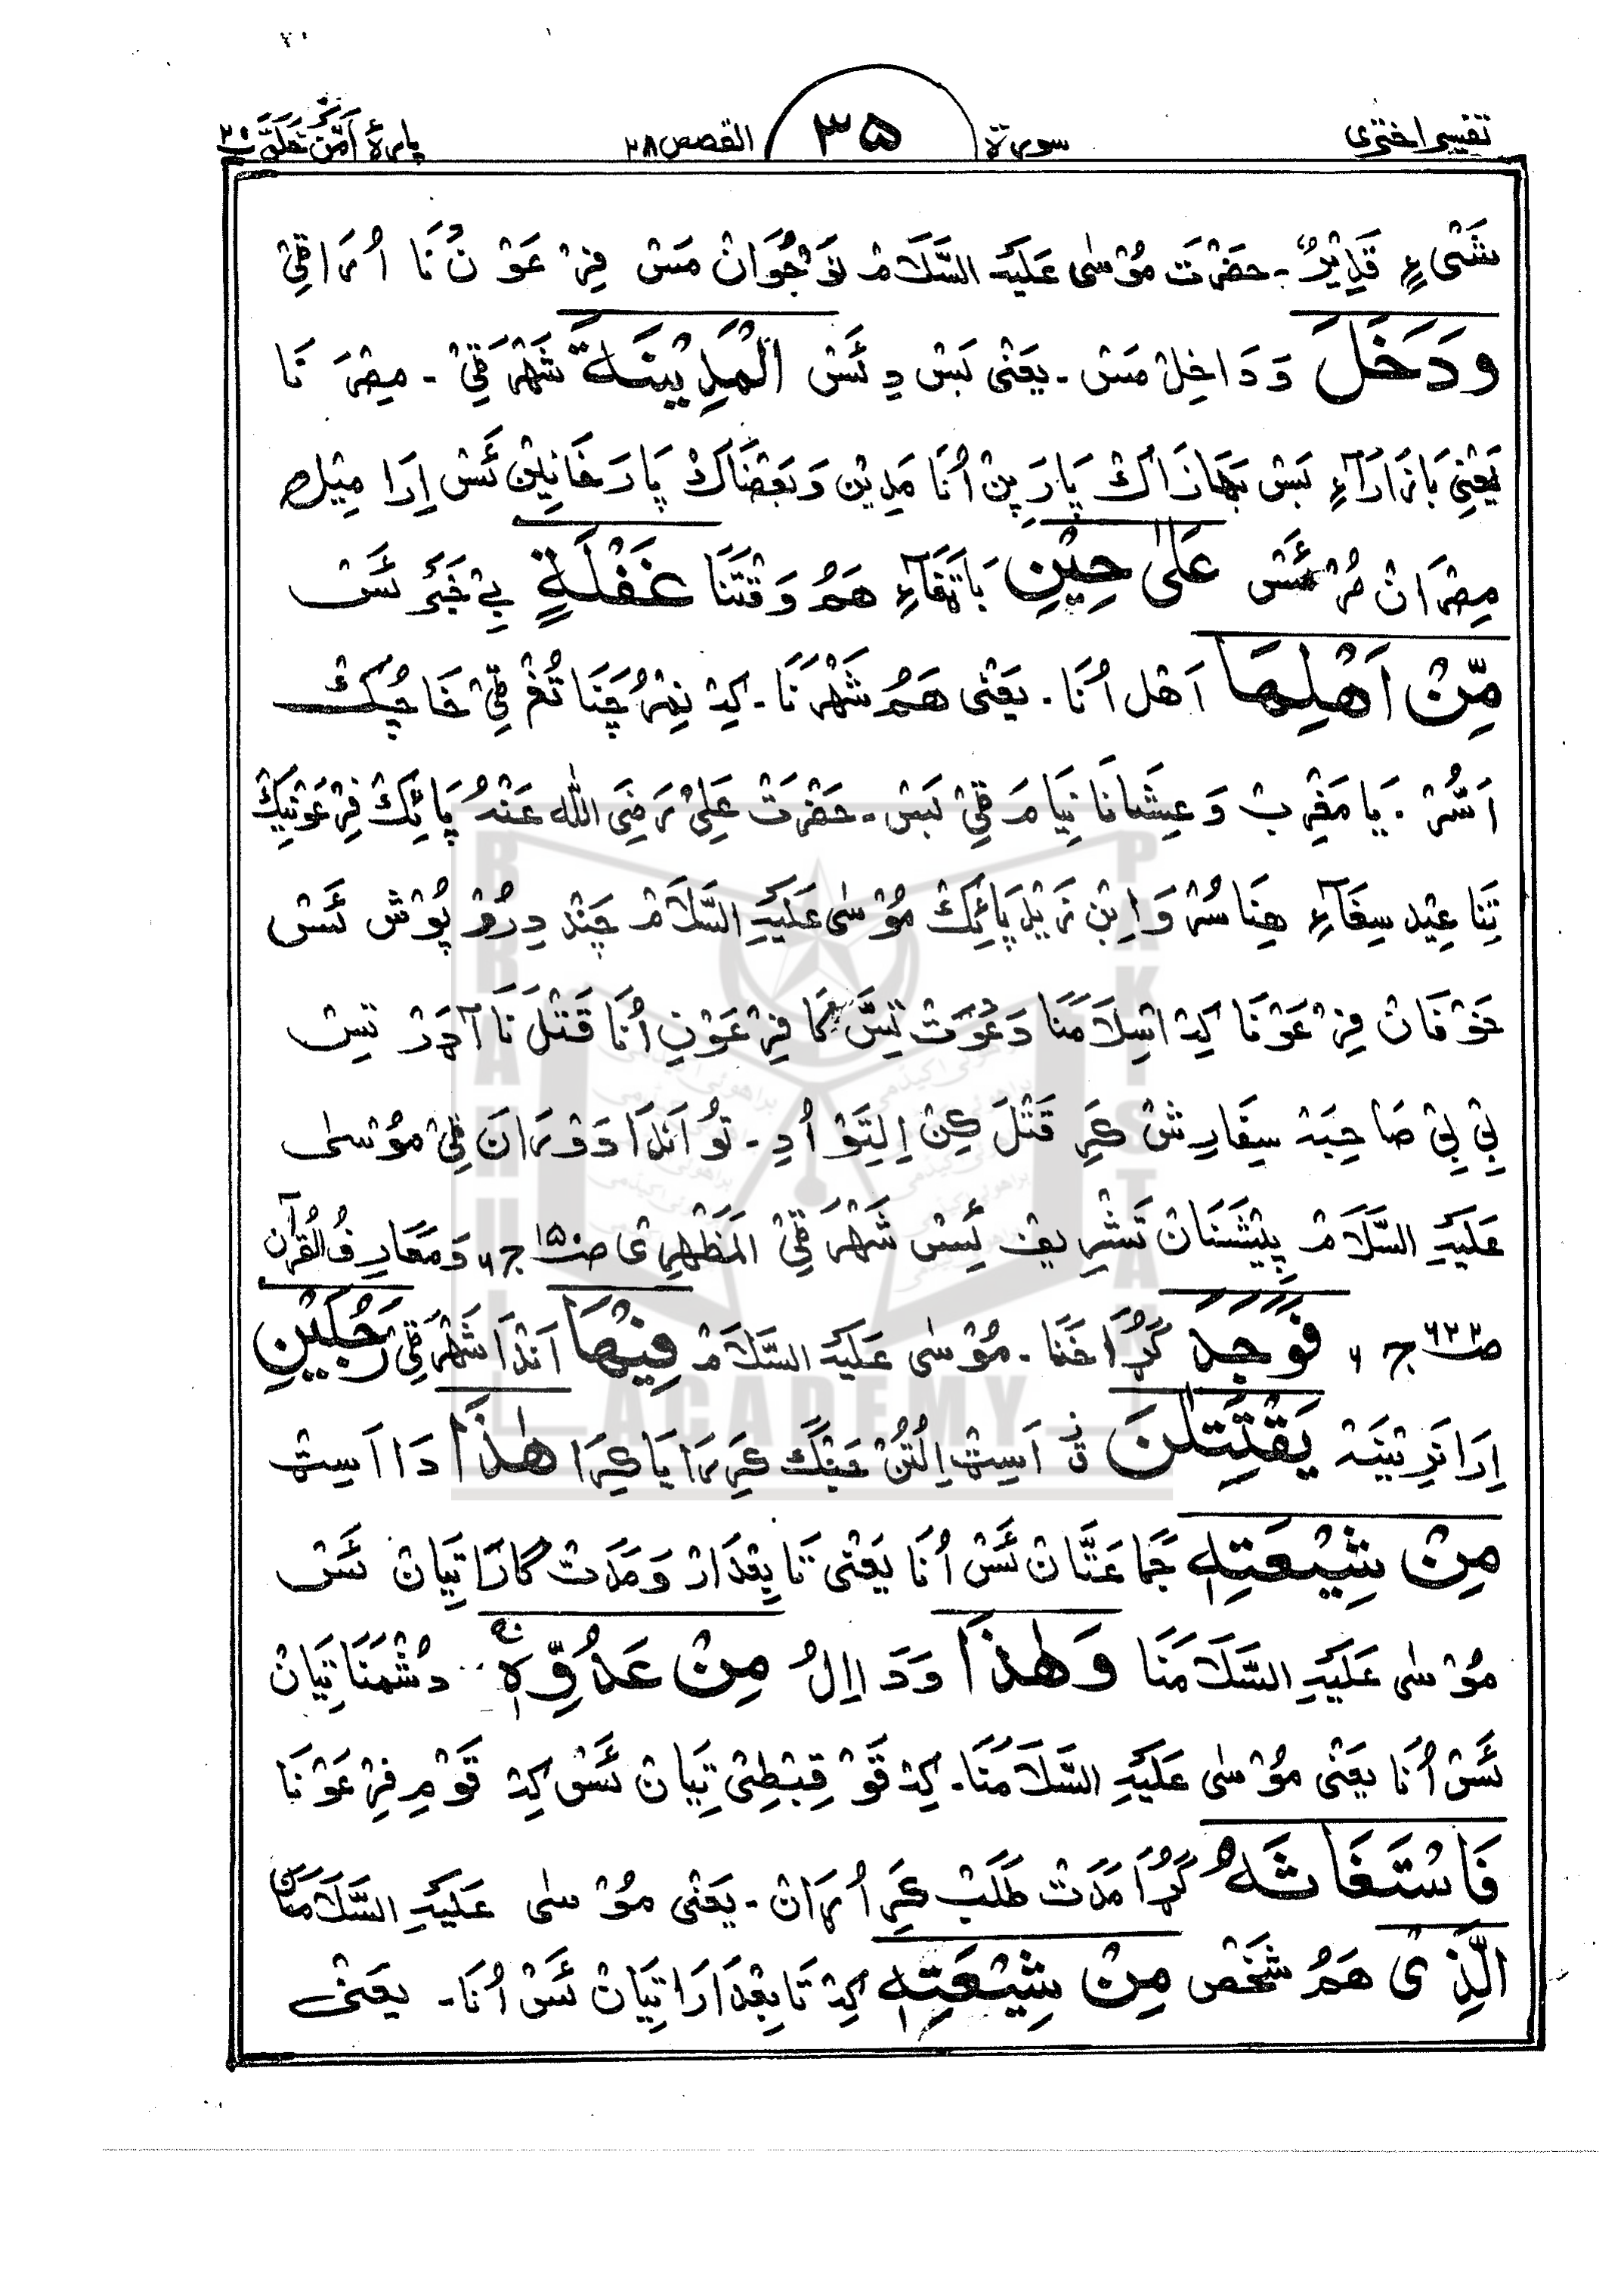 تفسیر اختری سورة ۳۵ القصص ۲۸ پارۀ اَمَّن خَلَقَ ۲۰
شَیْءٍ قَدِیْرٌ۔ حَضْرَت مُوْسٰی عَلَیْہِ السَّلَامْ نَوْجُوَانْ مَسْ فِرْعَوْنُ نَا اُرَاقِیْ
وَدَخَلَ وَدَاخِلْ مَسْ۔ یَعْنٰی بَسْ دِ ئَسْ الْمَدِیْنَةَ شَهْرَقِیْ۔ مِصْرَ نَا
یَعْنِیْ بَازَارَآءِ بَسْ بَهَازَاکْ پَارَ پِنْ اُنَا مَدِیْن وَبَعْضَاکْ پَارَ خَانِیْن ئَسْ اِرَا مِیْل
مِصْرَانْ مُرْ ئَسْ عَلٰی حِیْنِ بَاتَفَآءِ هَمُ وَقْتَنَا غَفْلَةٍ بِیْ خَبَرْ ئَسْ
مِّنْ اَهْلِهَا اَهْل اُنَا۔ یَعْنٰی هَمُ شَهْرَنَا۔ کِہْ نِیْمْرُچَنَا تُغْ قِیْ خَاچُکْ
اَسُّرْ۔ یَا مَغْرِبْ وَ عِشَانَا نِیَامَ قِیْ بَسْ۔ حَضْرَتْ عَلِیْ رَضِیَ اللّٰه عَنْهُ پَائِکْ فِرْعَوْنِیْکْ
تِنَا عِیْد سِفَآءِ هِنَاسُرْ وَاِبْن زَیْد پَائِکْ مُوْسٰی عَلَیْهِ السَّلَامْ چَنْد دِرُمْ پُوْش ئَسْ
خَوْفَانْ فِرْعَوْنَا کِہْ اِسْلَامَنَا دَعْوَتْ تِسَّکَا فِرْعَوْنِ اُنَا قَتْلَ نَا آرْدَرْ تِسْ
بِیْ بِیْ صَاحِبَہ سِفَارِشْ کَرِ قَتْلَ کِنْ اِلِتَوْ اُدِ۔ تُو اَنْدَا دَوْرَانَ قِیْ مُوْسٰی
عَلَیْهِ السَّلَامْ پِیْشَنَانْ تَشْرِیْف ئِسْ شَهْرَقِیْ الْمَظْهرِی صـ۱۵۰ ج۷ وَ مَعَارِفُ الْقُرْآن
صـ۶۲۲ ج۶ فَوَجَدَ گُڑَا خَنَا۔ مُوْسٰی عَلَیْهِ السَّلَامْ فِیْهَا اَنْدَا شَهْرَقِیْ رَجُلَیْنِ
اِرَا نَرِیْنَہ یَقْتَتِلٰنِ اَسِٹ اِلُتُنْ جَنْگ کَرِرَا یَا کِرَا هٰذَا دَا اَسِٹ
مِنْ شِیْعَتِهٖ جَمَاعَتَّانْ ئَسْ اُنَا یَعْنٰی تَابِعْدَارْ وَ مَدَتْ کَارَا تِیَانْ ئَسْ
مُوْسٰی عَلَیْهِ السَّلَامَنَا وَهٰذَا وَدَا اِلُ مِنْ عَدُوِّهٖ دُشْمَنَا تِیَانْ
ئَسْ اُنَا یَعْنٰی مُوْسٰی عَلَیْهِ السَّلَامُنَا۔ کِہْ قَوْ قِبْطِیْ تِیَانْ ئَسْ کِہْ قَوْمِ فِرْعَوْنَا
فَاسْتَغَاثَهُ گُڑَا مَدَتْ طَلَبْ کَرِ اُرَانْ۔ یَعْنٰی مُوْسٰی عَلَیْهِ السَّلَامَنَانْ
الَّذِیْ هَمُ شَخْص مِنْ شِیْعَتِهٖ کِہْ تَابِعْدَارَا تِیَانْ ئَسْ اُنَا۔ یَعْنٰی
BRAHUI ACADEMY PAKISTAN